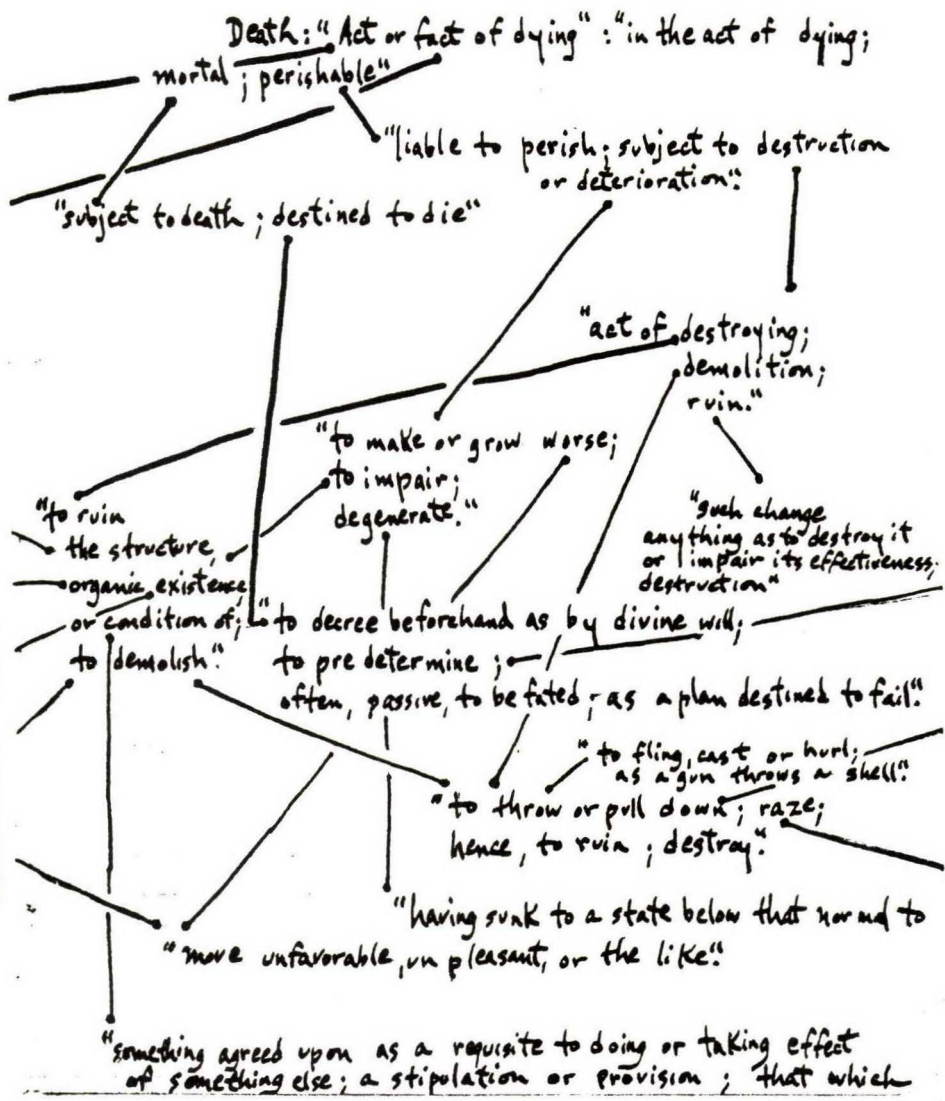 Death: "Act or fact of dying" : "in the act of dying;
mortal ; perishable"
"liable to perish; subject to destruction
or deterioration".
"subject to death ; destined to die"
"act of destroying;
demolition;
ruin."
"to make or grow worse;
to impair;
degenerate."
"to ruin
the structure,
organic existence
or condition of;
to demolish".
"such change
anything as to destroy it
or impair its effectiveness;
destruction"
"to decree beforehand as by divine will;
to pre determine ;
often, passive, to be fated ; as a plan destined to fail".
"to fling, cast or hurl;
as a gun throws a shell".
"to throw or pull down; raze;
hence, to ruin ; destroy".
"having sunk to a state below that normal to
"more unfavorable, un pleasant, or the like".
"something agreed upon as a requisite to doing or taking effect
of something else; a stipulation or provision ; that which